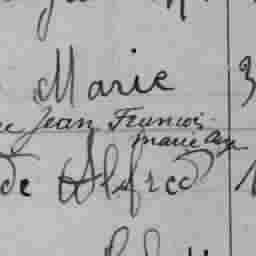 Marie 3
Jean Francois
marie
de Alfred 1